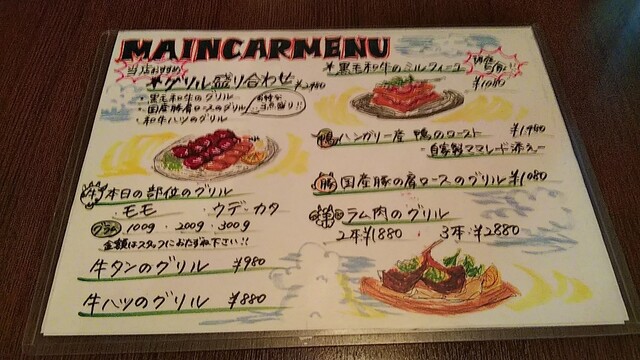 MAINCARMENU
当店おすすめ
グリル盛り合わせ
・黒毛和牛のグリル
・国産豚肩ロースのグリル
・和牛ハツのグリル
お得な3点盛り!!
牛 本日の部位のグリル
・モモ ・ウデ・カタ
グラム 100g・200g・300g
金額はスタッフにおたずね下さい!!
牛タンのグリル ¥980
牛ハツのグリル ¥880
黒毛和牛のミルフィーユ
¥1080
鴨 ハンガリー産 鴨のロースト ¥1480
-自家製ママレード添え-
豚 国産豚の肩ロースのグリル ¥1080
羊 ラム肉のグリル
2本¥1880 3本・¥2880